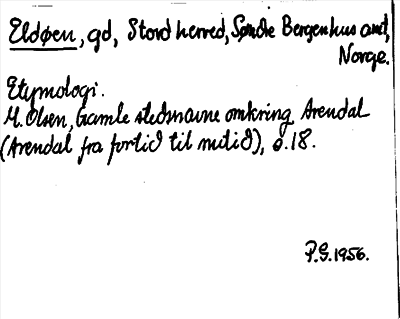 Eldøen, gd, Stord herred, Søndre Bergenhus amt,
Norge.
Etymologi.
M. Olsen, Gamle stedsnavne omkring Arendal
(Arendal fra fortid til nutid), s. 18.
P.G. 1956.